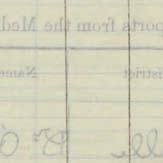 ports from the Med
istrict Name
lle Dr O'